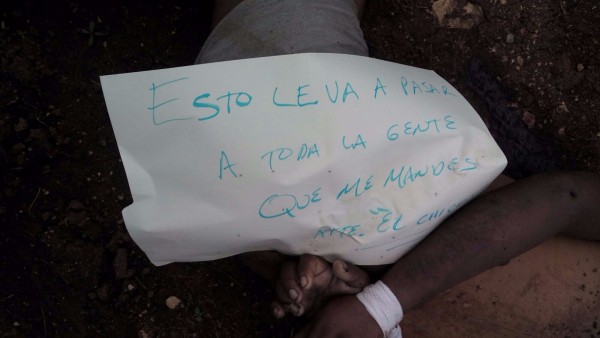 ESTO LE VA A PASAR
A. TODA LA GENTE
QUE ME MANDES
ATTE. "EL